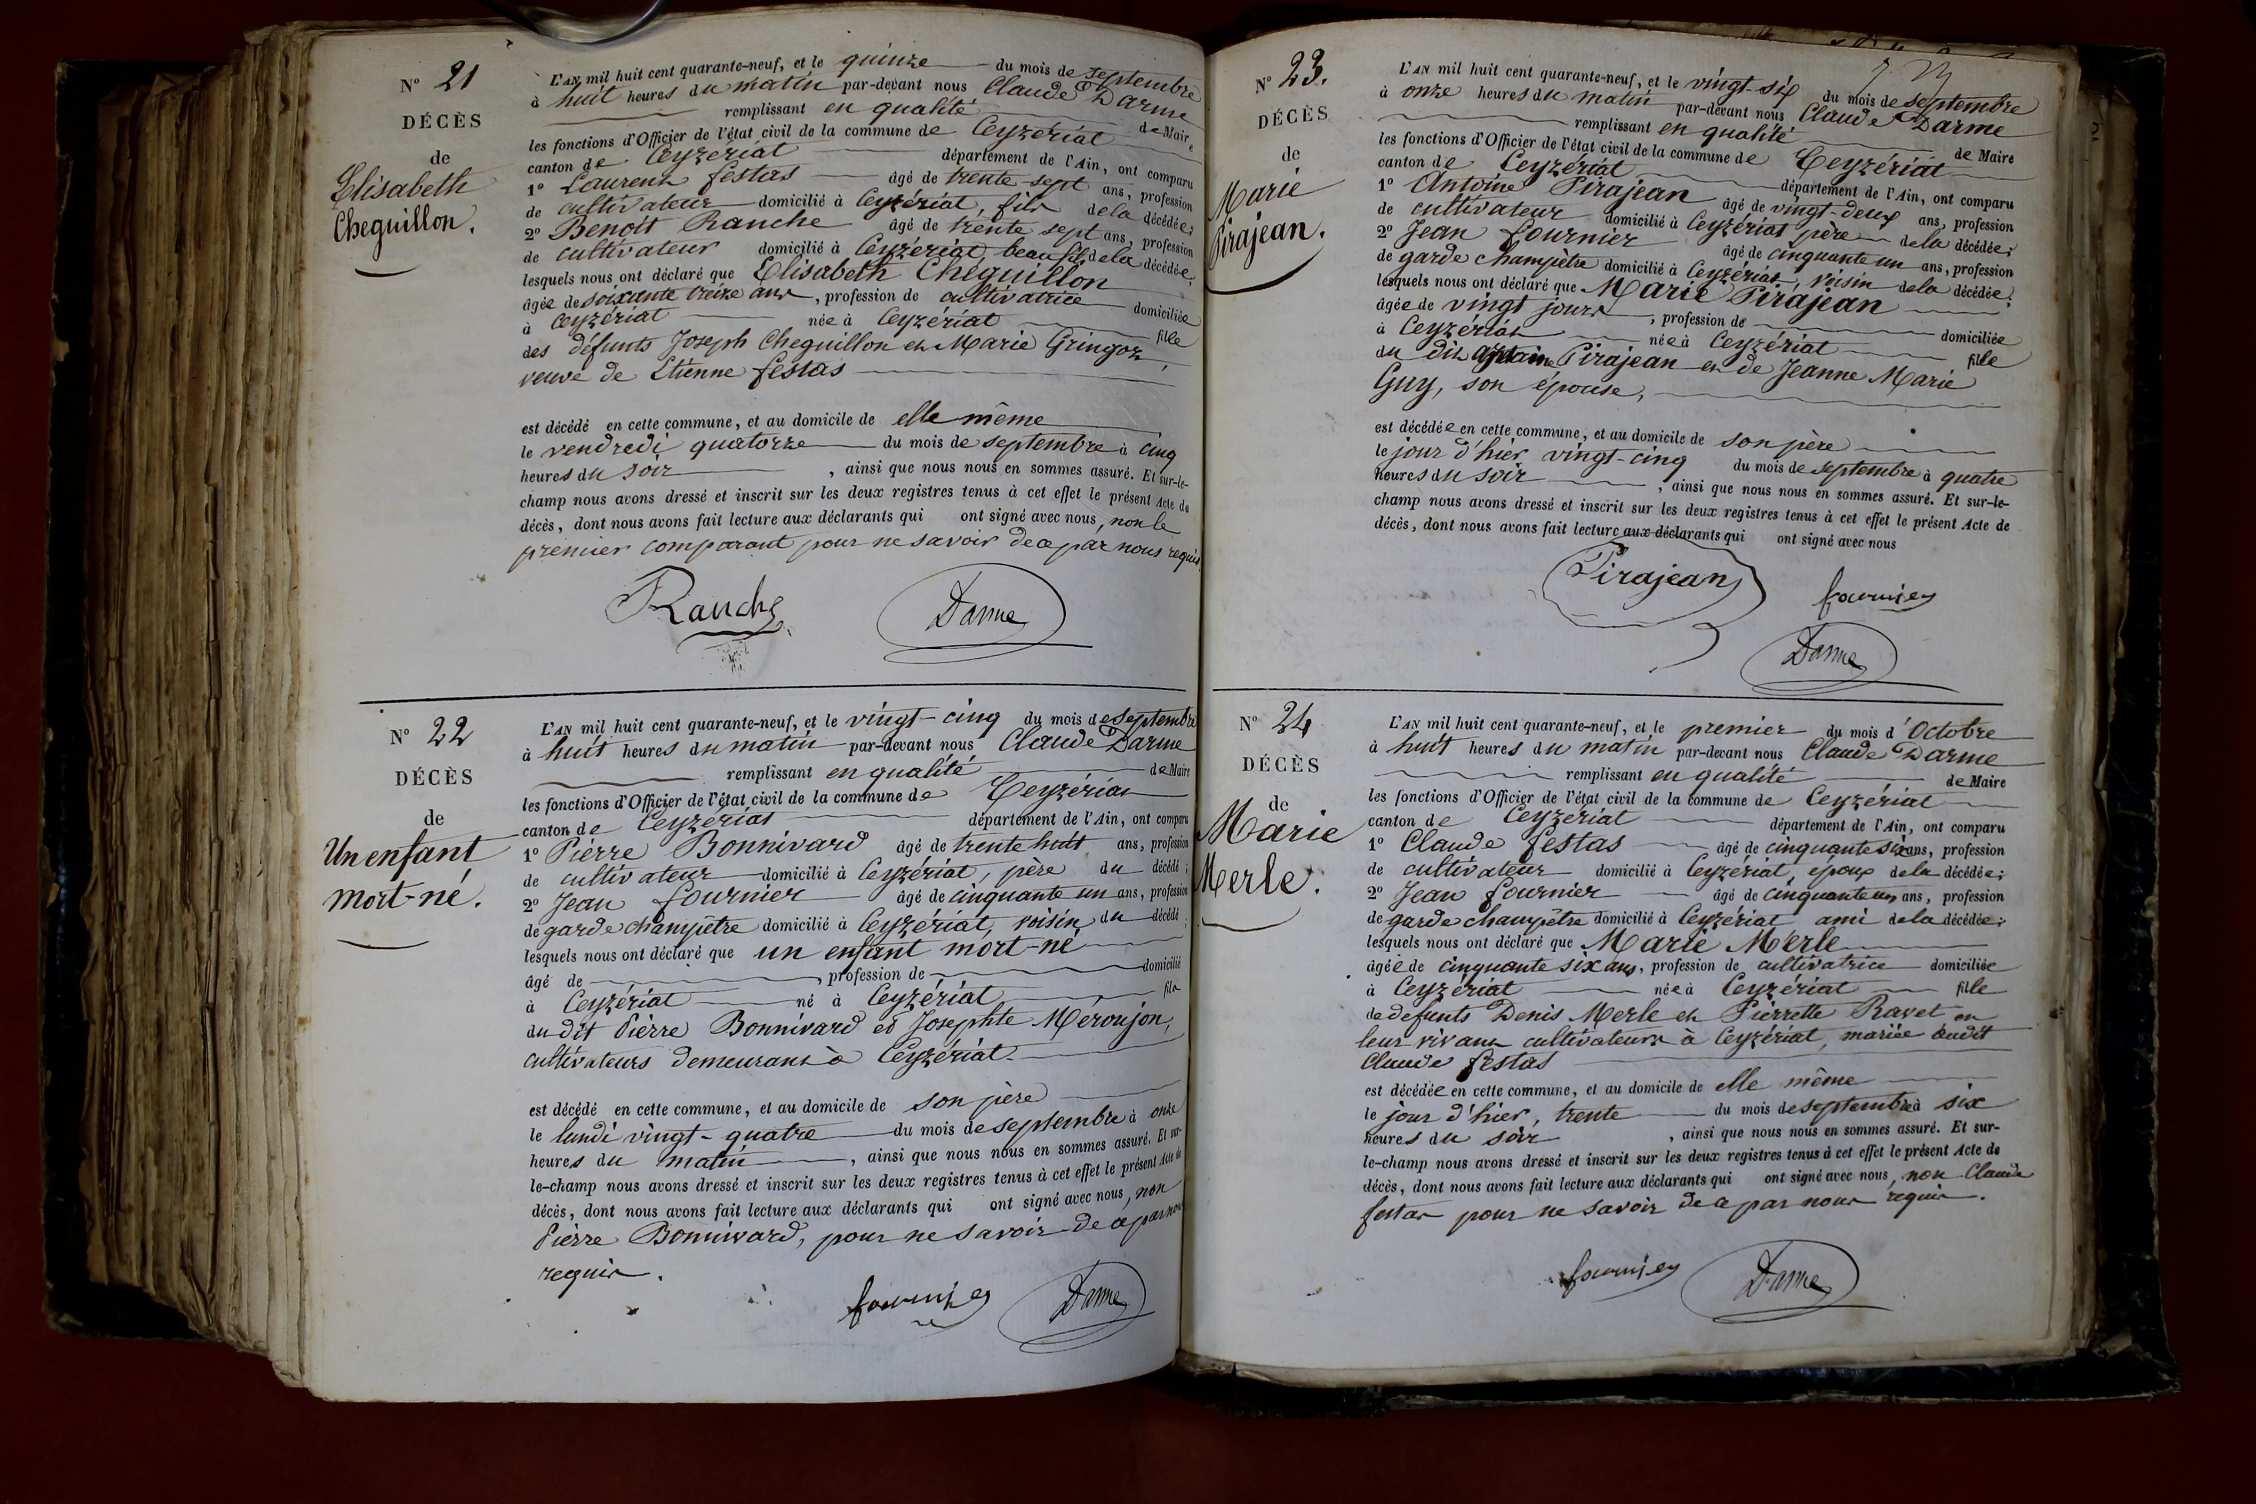 N° 21
DÉCÈS
de
Elisabeth
Cheguillon.
L'AN mil huit cent quarante-neuf, et le quinze du mois de septembre
à huit heures du matin par-devant nous Claude Darme
remplissant en qualité de Maire
les fonctions d'Officier de l'état civil de la commune de Ceyzériat
canton de Ceyzériat département de l'Ain, ont comparu
1° Laurent festas âgé de trente-sept ans, profession
de cultivateur domicilié à Ceyzériat, fils de la décédée;
2° Benoît Ranche âgé de trente sept ans, profession
de cultivateur domicilié à Ceyzériat, beau fils de la décédée,
lesquels nous ont déclaré que Elisabeth Cheguillon
âgée de soixante treize ans, profession de cultivatrice domiciliée
à Ceyzériat née à Ceyzériat fille
des défunts Joseph Cheguillon et Marie Gringoz,
veuve de Etienne festas
est décédé en cette commune, et au domicile de elle même
le vendredi quatorze du mois de septembre à cinq
heures du soir, ainsi que nous nous en sommes assuré. Et sur-le-
champ nous avons dressé et inscrit sur les deux registres tenus à cet effet le présent Acte de
décès, dont nous avons fait lecture aux déclarants qui ont signé avec nous, non le
premier comparant pour ne savoir de ce par nous requis.
Ranche Darme
N° 22
DÉCÈS
de
Un enfant
mort-né.
L'AN mil huit cent quarante-neuf, et le vingt-cinq du mois de septembre
à huit heures du matin par-devant nous Claude Darme
remplissant en qualité de Maire
les fonctions d'Officier de l'état civil de la commune de Ceyzériat
canton de Ceyzériat département de l'Ain, ont comparu
1° Pierre Bonnivard âgé de trente huit ans, profession
de cultivateur domicilié à Ceyzériat, père du décédé;
2° Jean fournier âgé de cinquante un ans, profession
de garde champêtre domicilié à Ceyzériat, voisin du décédé,
lesquels nous ont déclaré que un enfant mort-né
âgé de , profession de domicilié
à Ceyzériat né à Ceyzériat fils
du dit Pierre Bonnivard et Josephte Méroujon,
cultivateurs demeurant à Ceyzériat
est décédé en cette commune, et au domicile de son père
le lundi vingt-quatre du mois de septembre à onze
heures du matin, ainsi que nous nous en sommes assuré. Et sur-
le-champ nous avons dressé et inscrit sur les deux registres tenus à cet effet le présent Acte de
décès, dont nous avons fait lecture aux déclarants qui ont signé avec nous, non
Pierre Bonnivard, pour ne savoir de ce par nous
requis.
fournier Darme
N° 23.
DÉCÈS
de
Marie
Pirajean.
L'AN mil huit cent quarante-neuf, et le vingt-six du mois de septembre
à onze heures du matin par-devant nous Claude Darme
remplissant en qualité de Maire
les fonctions d'Officier de l'état civil de la commune de Ceyzériat
canton de Ceyzériat département de l'Ain, ont comparu
1° Antoine Pirajean âgé de vingt-deux ans, profession
de cultivateur domicilié à Ceyzériat père de la décédée;
2° Jean fournier âgé de cinquante un ans, profession
de garde champêtre domicilié à Ceyzériat, voisin de la décédée;
lesquels nous ont déclaré que Marie Pirajean
âgée de vingt jours, profession de domiciliée
à Ceyzériat née à Ceyzériat fille
du dit antoine Pirajean et de Jeanne Marie
Guy, son épouse,
est décédée en cette commune, et au domicile de son père
le jour d'hier vingt-cinq du mois de septembre à quatre
heures du soir, ainsi que nous nous en sommes assuré. Et sur-le-
champ nous avons dressé et inscrit sur les deux registres tenus à cet effet le présent Acte de
décès, dont nous avons fait lecture aux déclarants qui ont signé avec nous
Pirajean fournier
Darme
N° 24
DÉCÈS
de
Marie
Merle.
L'AN mil huit cent quarante-neuf, et le premier du mois d'Octobre
à huit heures du matin par-devant nous Claude Darme
remplissant en qualité de Maire
les fonctions d'Officier de l'état civil de la commune de Ceyzériat
canton de Ceyzériat département de l'Ain, ont comparu
1° Claude festas âgé de cinquante six ans, profession
de cultivateur domicilié à Ceyzériat, époux de la décédée;
2° Jean fournier âgé de cinquante un ans, profession
de garde champêtre domicilié à Ceyzériat ami de la décédée;
lesquels nous ont déclaré que Marie Merle
âgée de cinquante six ans, profession de cultivatrice domiciliée
à Ceyzériat née à Ceyzériat fille
de defunts Denis Merle et Pierrette Ravet en
leur vivant cultivateurs à Ceyzériat, mariée audit
Claude festas
est décédée en cette commune, et au domicile de elle même
le jour d'hier, trente du mois de septembre à six
heures du soir, ainsi que nous nous en sommes assuré. Et sur-
le-champ nous avons dressé et inscrit sur les deux registres tenus à cet effet le présent Acte de
décès, dont nous avons fait lecture aux déclarants qui ont signé avec nous, non Claude
festas pour ne savoir de ce par nous requis.
fournier Darme